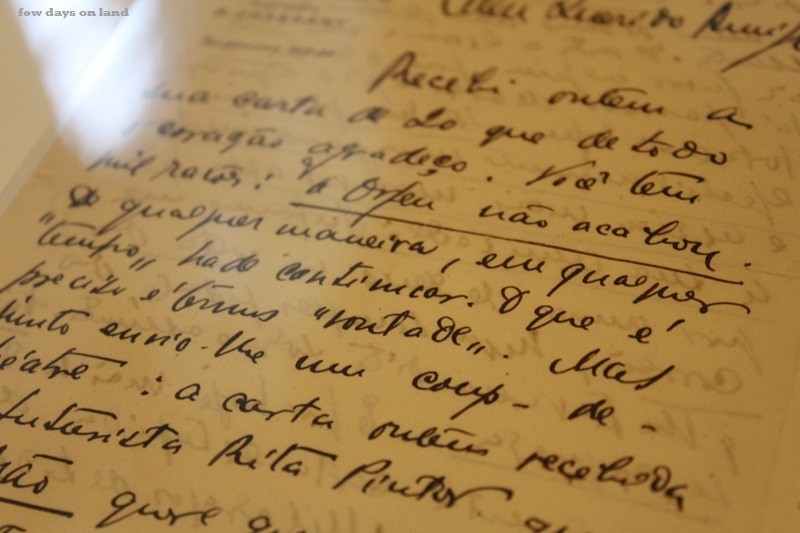 few days on land
Meu Querido Amigo
Recebi ontem a
sua carta de 20 que de todo
o coração agradeço. Você tem
mil razões: o Orfeu não acabou.
De qualquer maneira, em qualquer
"tempo" hade continuar. O que é
preciso é termos "vontade". Mas
junto envio-lhe um coup-de-
théatre: a carta ontem recebida
futurista Rita Pintor.
não quere